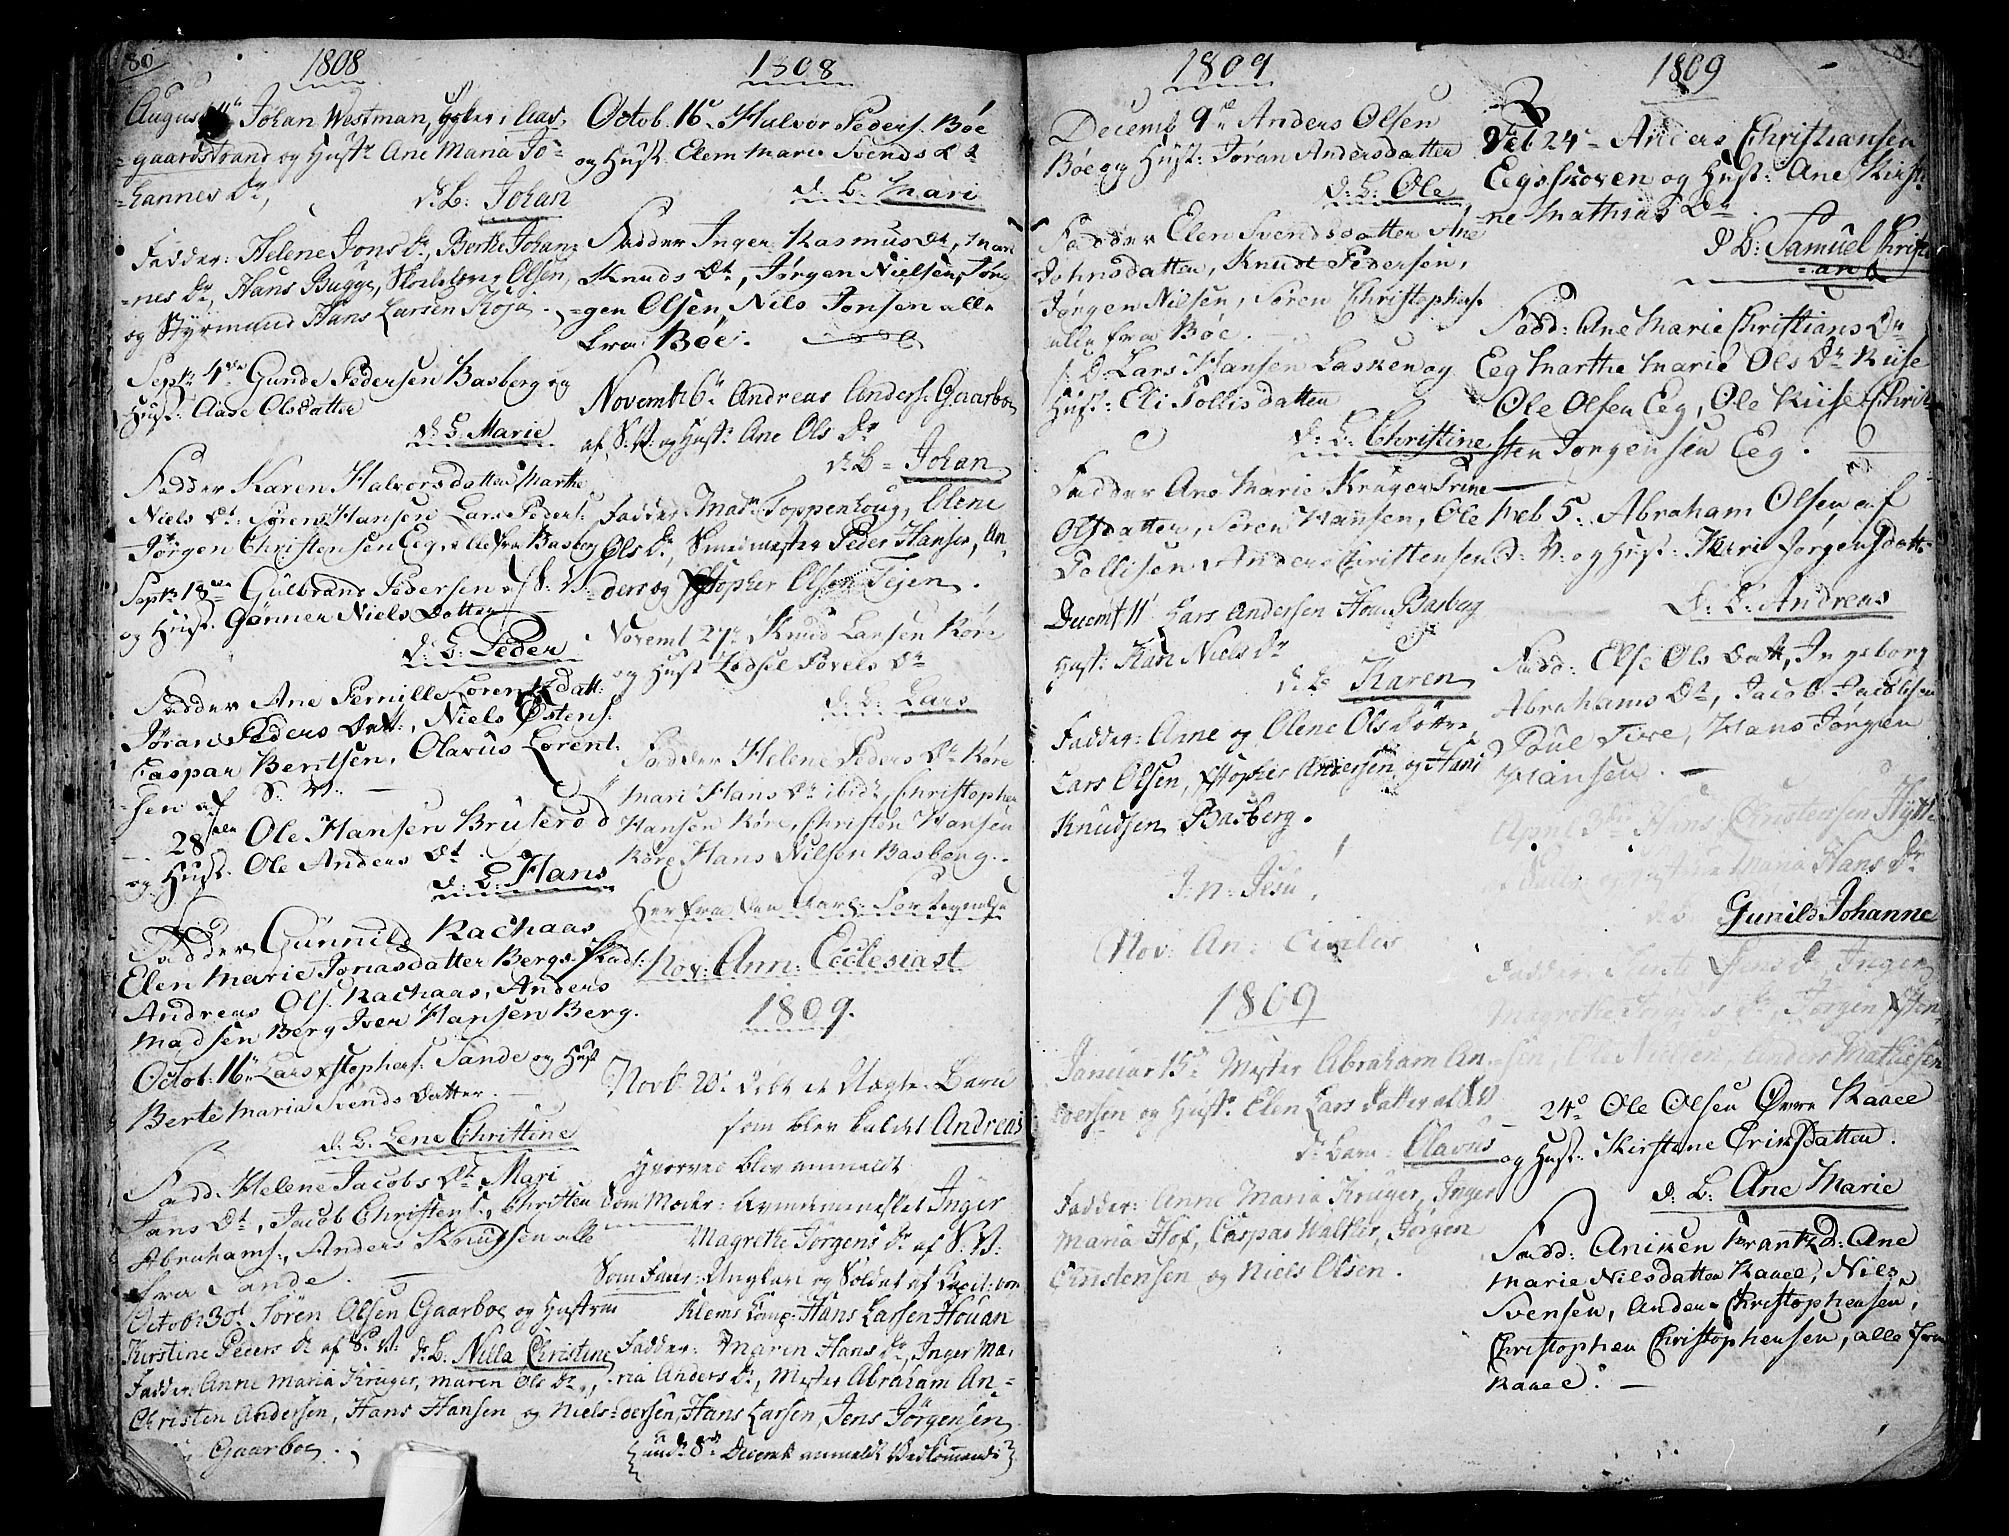 80
1808
August Johan Westman, i Aas
=gaardstrand og Hustr Ane Maria Jo=
hannes Dr,
d: B: Johan
Fadder: Helene Jons Dr, Berthe Johan=
=nes Dr, Hans Bugge, Olsen,
og Styrmand Hans Larsen Roja.
Septr 4de Gunde Pedersen Basberg og
Hust: Aase Olsdatter
d: B: Marie
Fadder Karen Halvorsdatter Marthe
Niels Dt: Søren Hansen Lars Peders:
Jørgen Christensen Eeg, alle fra Basberg
Septr 18de Gulbrand Pedersen af S: V:
og Hust. Gunner Niels Datter
d: B: Peder
Fadder Ane Pernille Lorentzdatt:
Jøran Peders Datt:, Niels Østens:
Caspar Bentsen, Olavus Lorent
=sen af S: V: —
— 28 Ole Hansen Bruserød
og Hust. Ole Anders Dt
d: B: Hans
Fadder Gunnild Rachaas
Elen Marie Jonasdatter Bergs
Andreas Ols. Rachaas, Anders
Madsen Berg Iver Hansen Berg.
Octob: 16 Lars Xstophers: Sande og Hust
Berte Maria Svends Datter. —
d: B: Lene Christine
Fadd. Helene Jacobs Dt. Mari
Jans Dt, Jacob Christens:, Christen
Abrahams:, Anders Knudsen alle
fra Sande. —
Octob: 30t Søren Olsen Gaarboe og Hustrue
Kirstine Peders Dr af S: V: d: B: Nilla Christine
Fadder: Anne Maria Krüger, Maren Ols Dr,
Christen Andersen, Hans Hansen og Niels
Gaarboe.
1808
Octob. 16 Halvor Peders. Bøe
og Hust. Elen Marie Svends Dt
d. B. Mari
Fadder Inger Rasmus Dt, Mari
Knuds Dt, Jørgen Nielsen, Jør
=gen Olsen, Nils Jonsen alle
fra Bøe.
Novemb: 6 Andreas Anders: Gaarboe
af S: V: og Hust: Ane Ols Dr
d: B = Johan
Fadder Mad Toppenhoug, Olene
Ols Dr, Smedmester Peder Hansen, An=
=ders og Xstopher Olsen Teien.
Novemb 27 Knud Larsen Røre
og Hust Lodsel Povels Dt
d: B: Lars
Fadder Helene Peders Dt Røre
Mari Hans Dt ibid, Christopher
Hansen Røre, Christen Hansen
Røre Hans Nilsen Basberg. -
Her fra den Aarl: Fortegnelse
Nov: Ann: Ecclesiast
1809.
Novb: 20 døbt et Uægte Barn
som blev kaldet Andreas
Hvorved blev anmeldt
som Moder: Inger
Magrethe Jörgens Dr af S: V:
Som Fader: Ungkarl og Soldat af Capit: von
Klems Comp: Hans Larsen Houan
Fadder: Maren Hans Dr, Inger Ma=
ria Anders Dr, Mester Abraham An=
=dersen, Hans Larsen, Jens Jörgensen
Decemb anmeldt
1809
Decemb 9de Anders Olsen
Bøe og Hust: Jøran Andersdatter
d: B: Ole
Fadder Elen Svendsdatter Ane
Johnsdatter, Knudt Pedersen,
Jørgen Nilsen, Søren Christophers:
alle fra Bøe. —
s: D: Lars Hansen Lasken og
Hust: Eli Tollisdatter
d: B: Christine
Fadder Ane Marie Krüger Trine
Olsdatter, Søren Hansen, Ole
Tollisen, Anders Christensen
Decemb 11 Lars Andersen Hou Basberg
Hust: Kari Niels Dr
d: B: Karen
Fadder: Anne og Olene Ols Døttre,
Lars Olsen, Xstopher Andersen og Hans
Knudsen Basberg.
I: n: Jesu,
Nov: An: Civilis
1809
Januar 15 Mester Abraham An=
dersen og Hustr. Elen Lars datter af S: V
d: Barn: Olavus
Fadder: Anne Maria Krüger, Inger
Maria Hof, Caspar Halker, Jörgen
Christensen og Niels Olsen.
1809
Feb 24 - Anders Christiansen
Eegsskoven og Hust: Ane Kirst
ne Mathias Dr
d B: Samuel Christi
=an
Fadd: Ane Marie Christians Dr
Eeg Marthe Marie Ols Dr Kiise
Ole Olsen Eeg, Ole Kiise Chri
sten Jørgensen Eeg. —
— Feb. 5: Abraham Olsen af
S: V: og Hust: Kari Jørgensdatt:
d: B: Andreas
Fadd: Else Ols Datt, Ingeborg
Abrahams Dt, Jacob Jacobsen
Poul Tire, Hans Jørgen
Hansen. —
April 3 Hans Christensen Hytte
Maria Hans Dr
d: B: Gunild Johanne
Fadder: Inger
Magrethe Jörgens Dr, Jörgen Xsten=
=sen, Ole Nielsen, Anders Mathiesen
24 Ole Olsen Øvre Raaee
og Hust: Kirstene Eriksdatter.
d: B: Ane Marie
Fadd: Aniken Frantz D: Ane
Marie Nilsdatter Raaee, Nils
Svensen, Anders Christophersen,
Christopher Christophersen, alle fra
Raaee. —